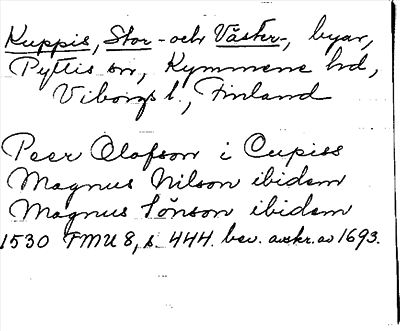 Kuppis, Stor- och Väster-, byar,
Pyttis sn, Kymmene hd,
Viborgs l., Finland
Peer Olafson i Cupiss
Magnus Nilson ibidem
Magnus Jönson ibidem
1530 FMU 8, s. 444. bev. avskr. av 1693.